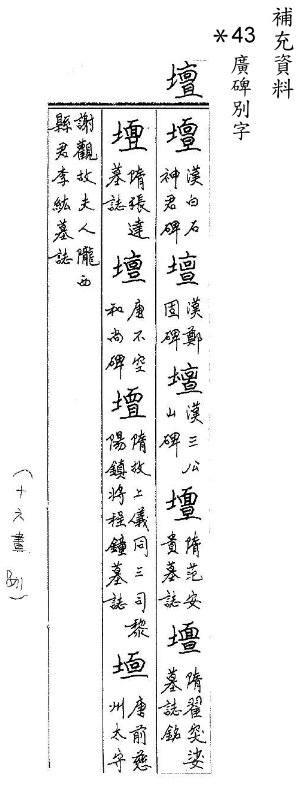 補充資料
*43 廣碑別字
壇
壇 漢白石神君碑 壇 漢鄭固碑 壇 漢三公山碑 壇 隋范安貴墓誌 壇 隋翟突娑墓誌銘
壇 隋張達墓誌 壇 唐不空和尚碑 壇 隋故上儀同三司黎陽鎮將程鐘墓誌 壇 唐前慈州太守
謝觀故夫人隴西縣君李紘墓誌
(十六畫 別)